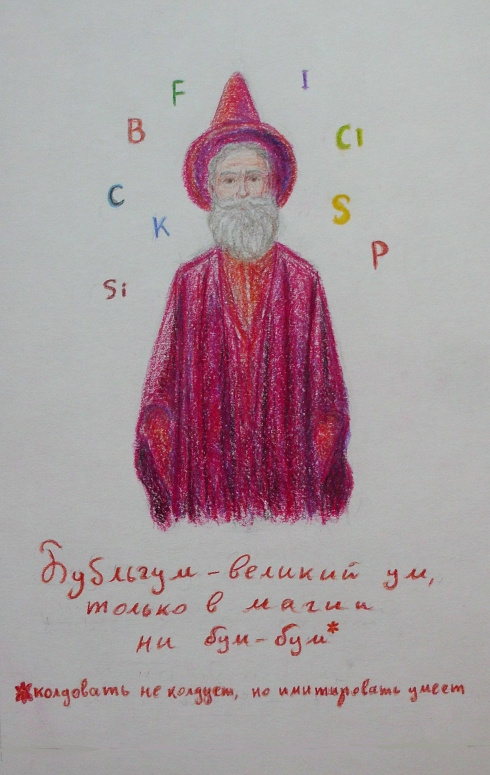 F
I
B
Cl
C
S
K
P
Si
Бубльгум – великий ум,
только в магии
ни бум-бум*
*колдовать не колдует, но имитировать умеет